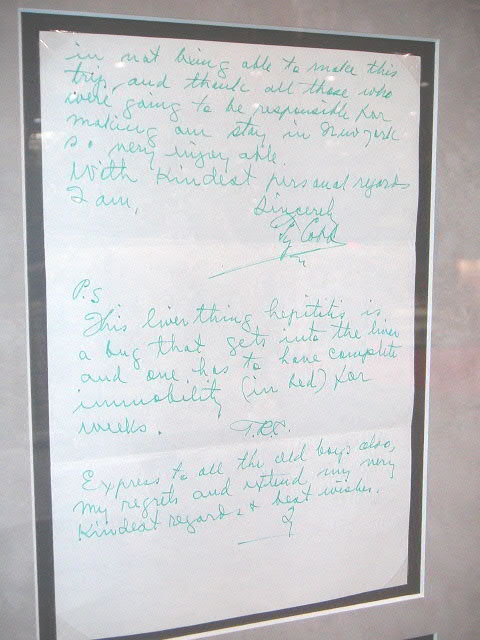 in not being able to make this
trip, and thank all those who
were going to be responsible for
making our stay in New York
so very injoyable.
With Kindest personal regards
I am,
Sincerely
Ty Cobb
P.S
This liver thing hepititis is
a bug that gets into the liver
and one has to have complete
immobility (in bed) for
weeks. T.R.C.
Express to all the old boys also,
my regrets and extend my very
Kindest regards & best wishes.